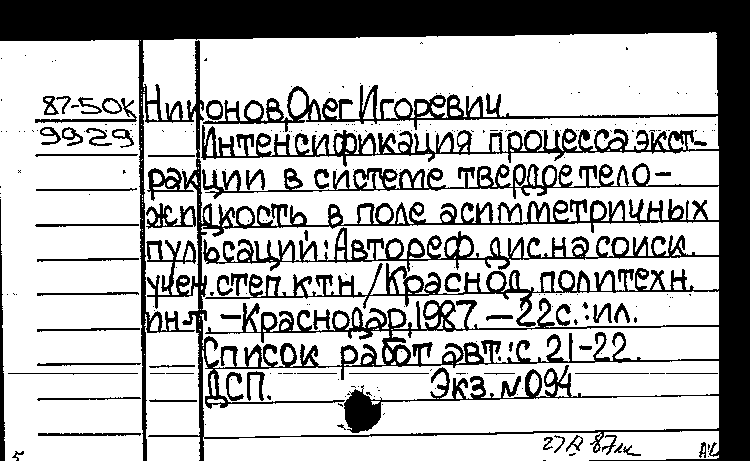 87-50К Никонов, Олег Игоревич.
9929 Интенсификация процесса экст-
ракции в системе твердое тело-
жидкость в поле асимметричных
пульсаций: Автореф. дис. на соиск.
учен. степ. к.т.н. /Краснод. политехн.
ин-т. - Краснодар, 1987. - 22с.: ил.
Список работ авт.: с. 21-22.
ДСП. Экз. № 094.